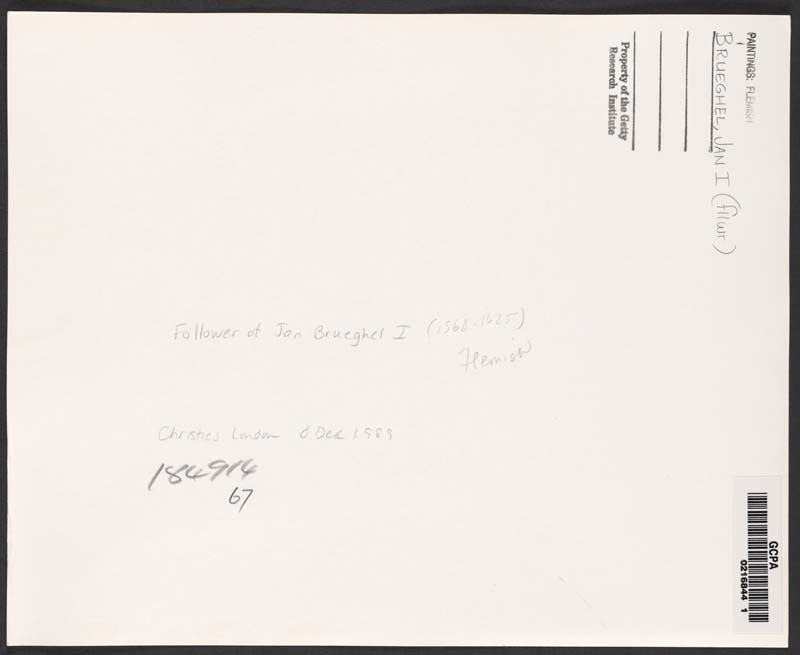 PAINTINGS: FLEMISH
BRUEGHEL, JAN I (fllwr)
Property of the Getty
Research Institute
Follower of Jan Brueghel I (1568-1625)
Flemish
Christies London 8 Dec 1989
184914
67
GCPA
0216844 1